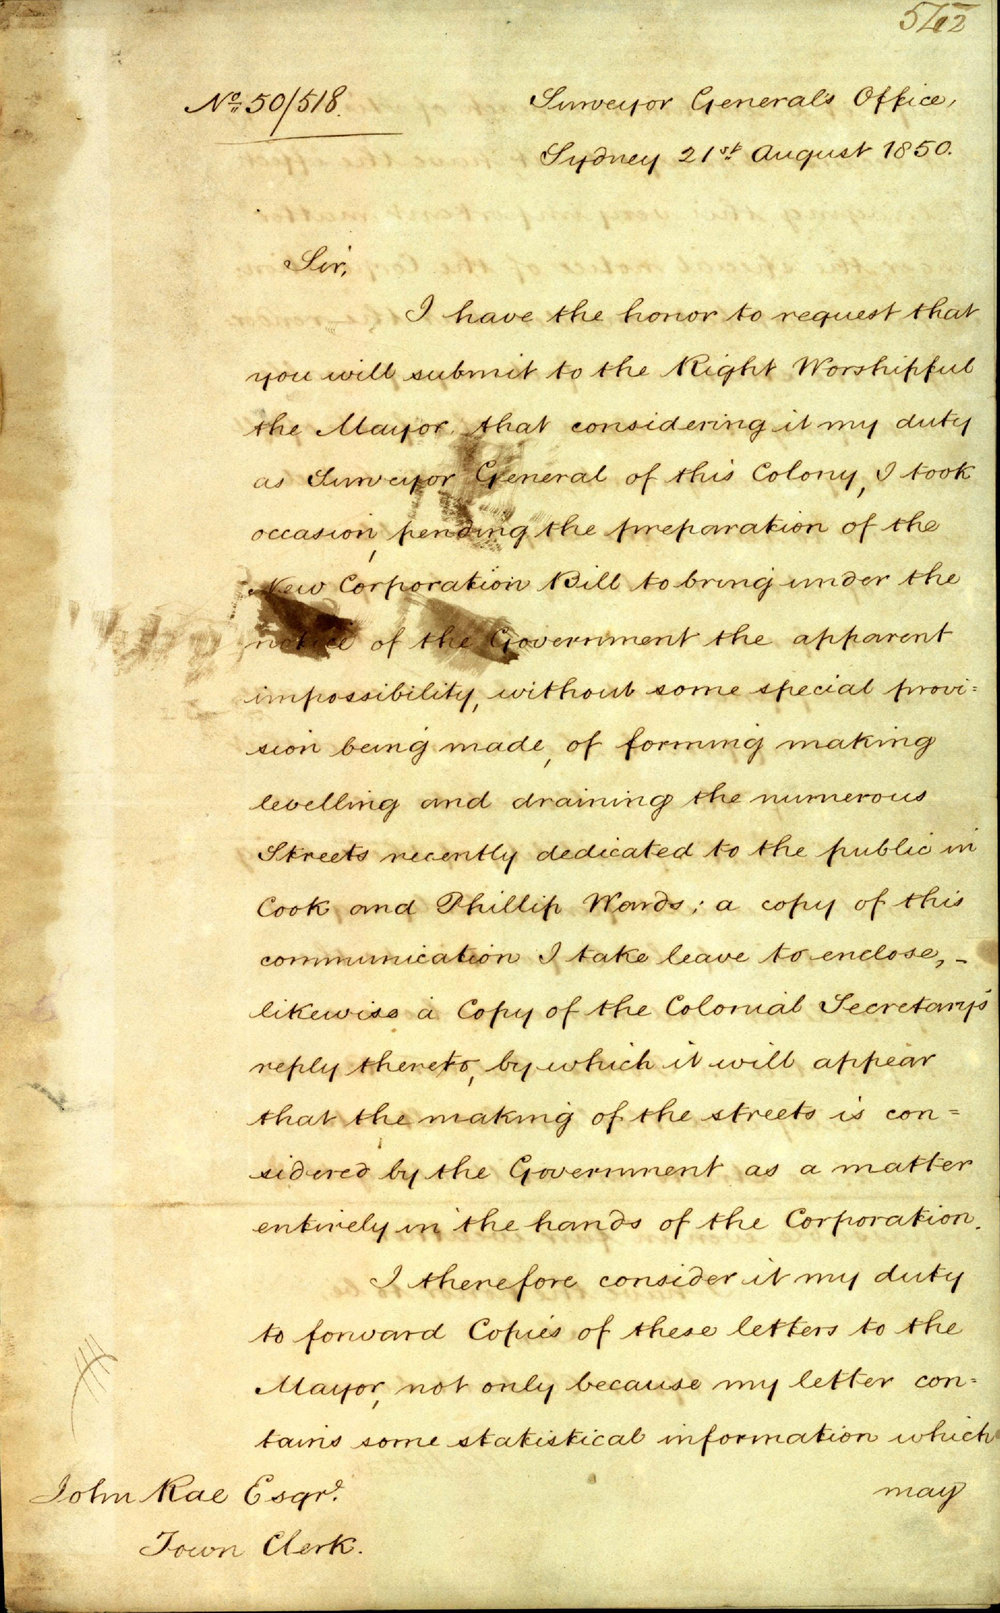 No 50/518.
Surveyor General's Office,
Sydney 21st August 1850.
Sir,
I have the honor to request that
you will submit to the Right Worshipful
the Mayor, that considering it my duty
as Surveyor General of this Colony, I took
occasion, pending the preparation of the
New Corporation Bill to bring under the
notice of the Government the apparent
impossibility, without some special provi=
sion being made, of forming making
levelling and draining the numerous
Streets recently dedicated to the public in
Cook and Phillip Wards; a copy of this
communication I take leave to enclose, -
likewise a Copy of the Colonial Secretary's
reply thereto, by which it will appear
that the making of the streets is con=
sidered by the Government as a matter
entirely in the hands of the Corporation.
I therefore consider it my duty
to forward Copies of these letters to the
Mayor, not only because my letter con=
tains some statistical information which
may
John Rae Esqre.
Town Clerk.